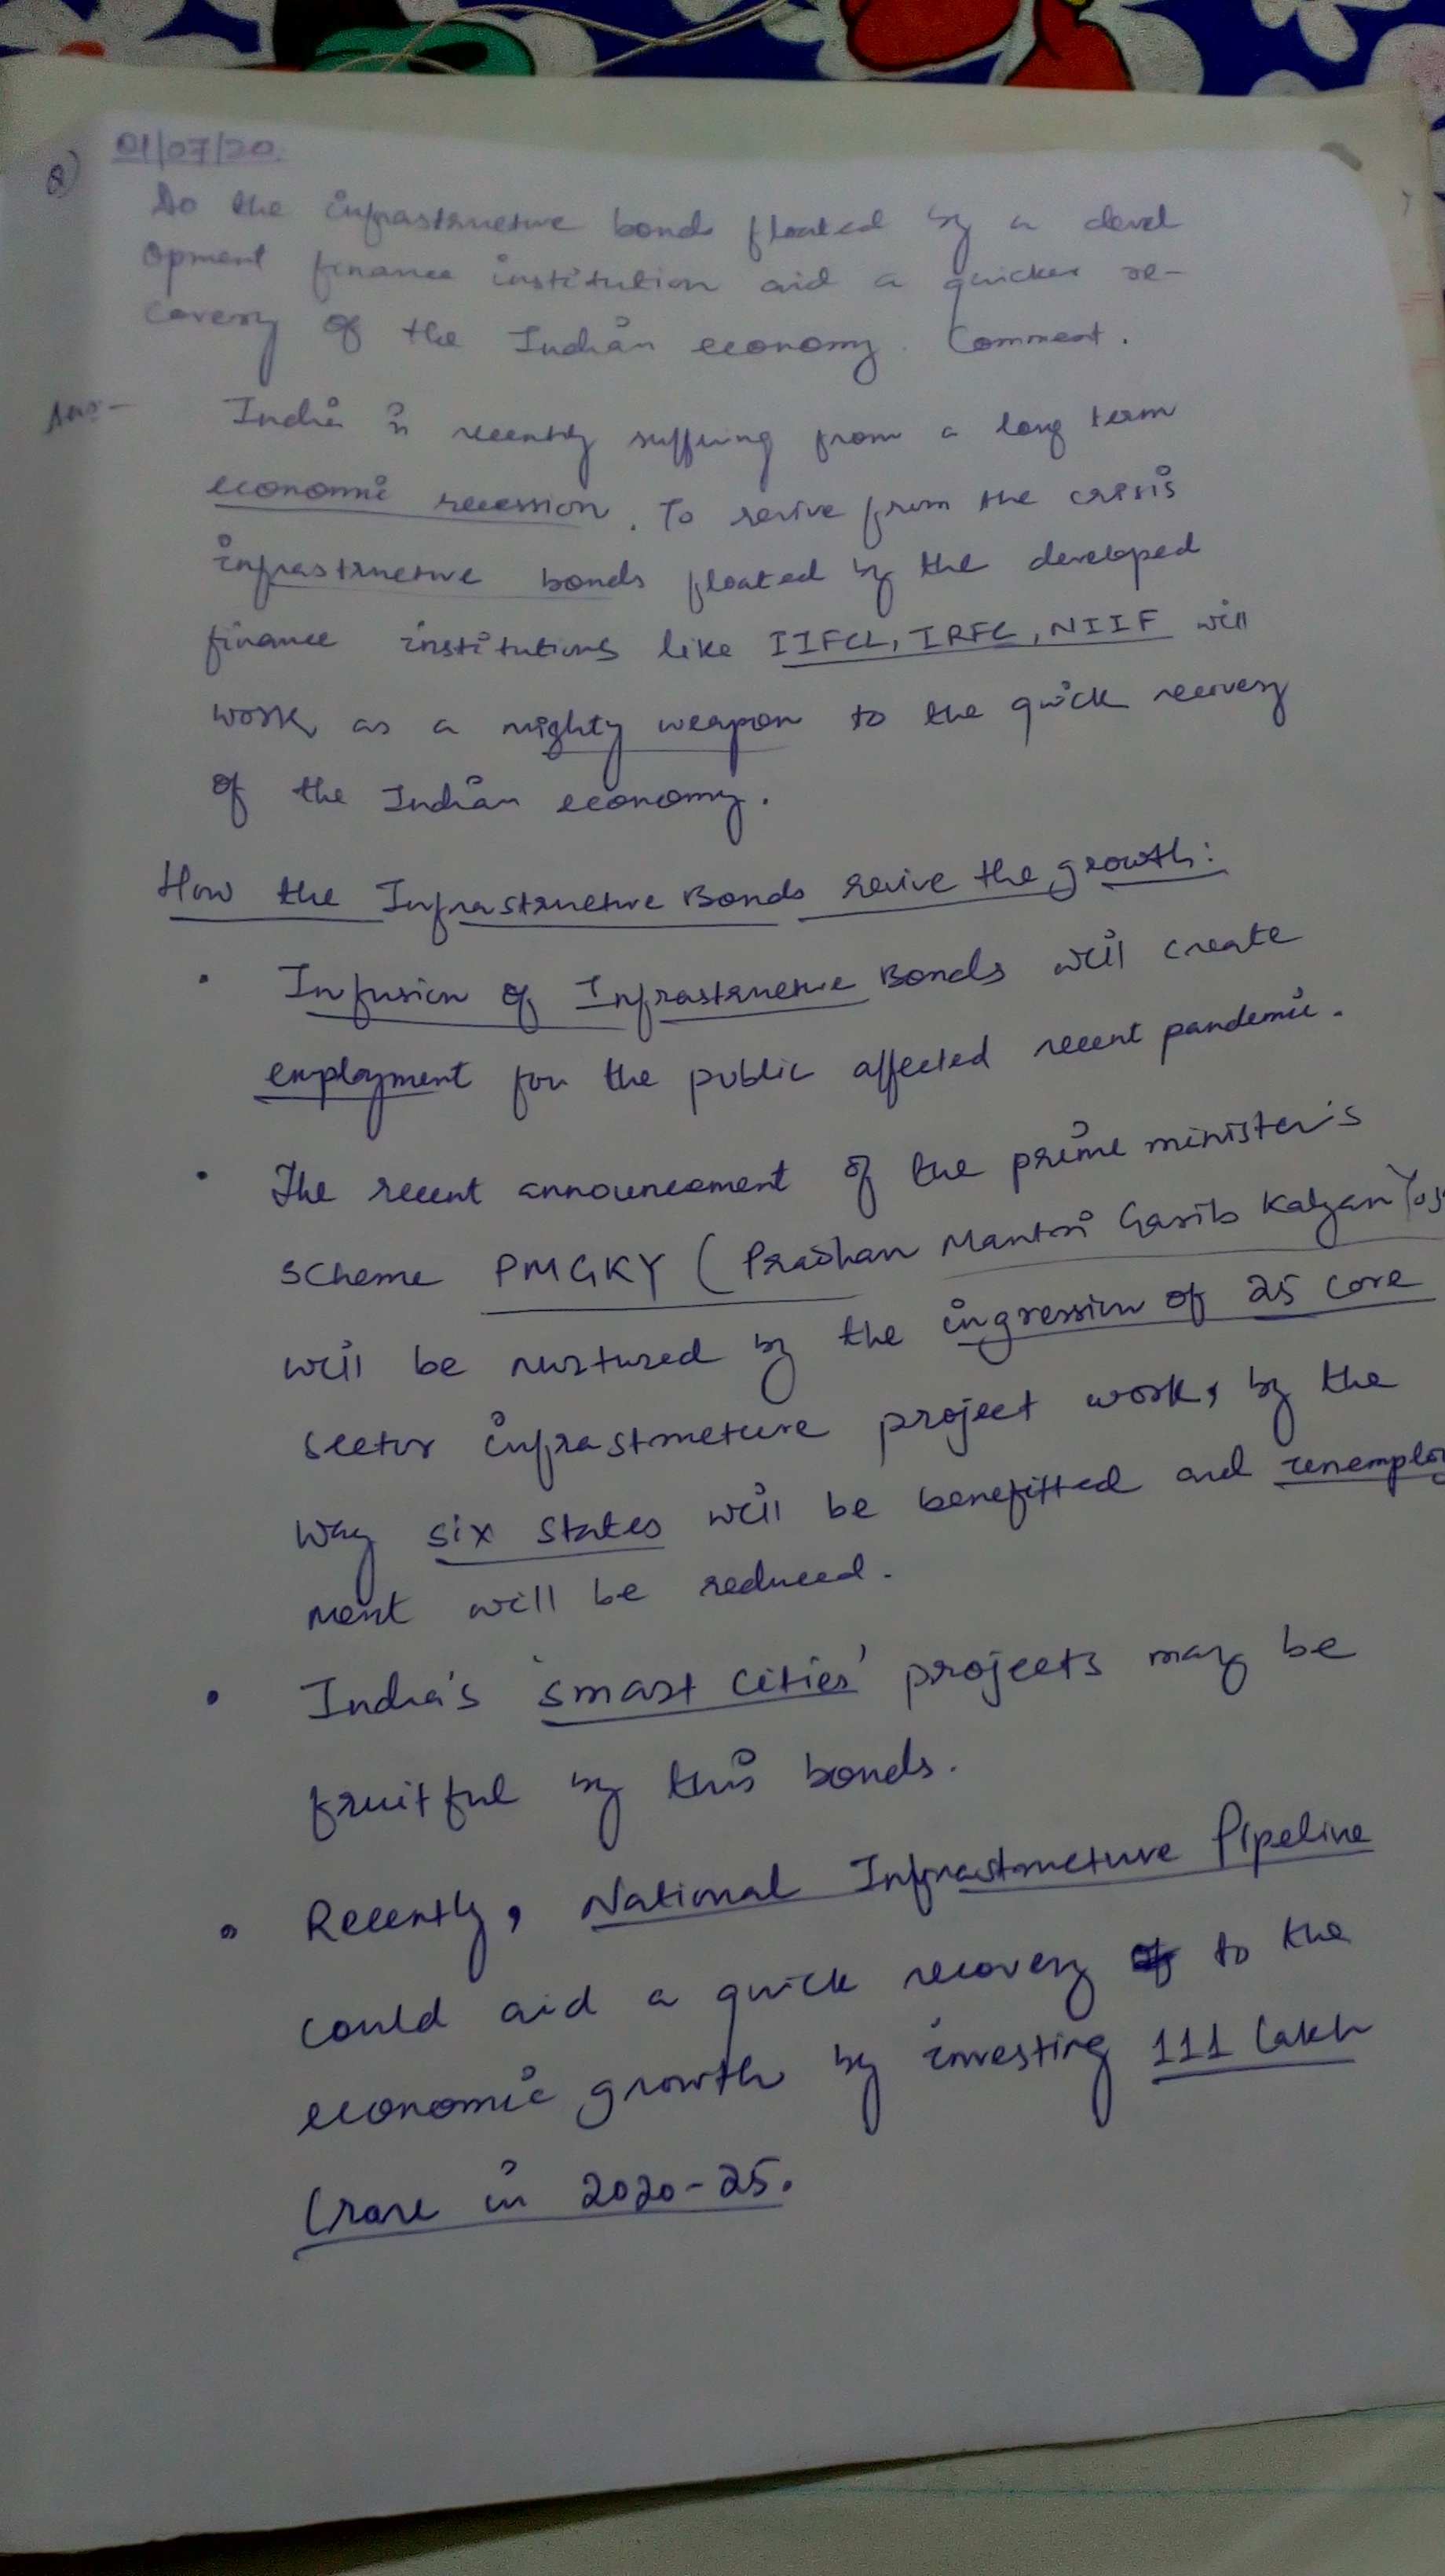 01/07/20.
Q) Do the infrastructure bonds floated by a devel
opment finance institution aid a quicker re-
covery of the Indian economy. Comment.
Ans:- India is recently suffering from a long term
economic recession. To revive from the crisis
infrastructure bonds floated by the developed
finance institutions like IIFCL, IRFC, NIIF will
work as a mighty weapon to the quick recovery
of the Indian economy.
How the Infrastructure Bonds revive the growth:
• Infusion of Infrastructure Bonds will create
employment for the public affected recent pandemic.
• The recent announcement of the prime minister's
scheme PMGKY (Pradhan Mantri Garib Kalyan Yoj
will be nurtured by the ingression of 25 core
sector infrastructure project work, by the
way six states will be benefitted and unemploy
ment will be reduced.
• India's 'smart cities' projects may be
fruitful by this bonds.
• Recently, National Infrastructure Pipeline
could aid a quick recovery to the
economic growth by investing 111 lakh
Crore in 2020-25.